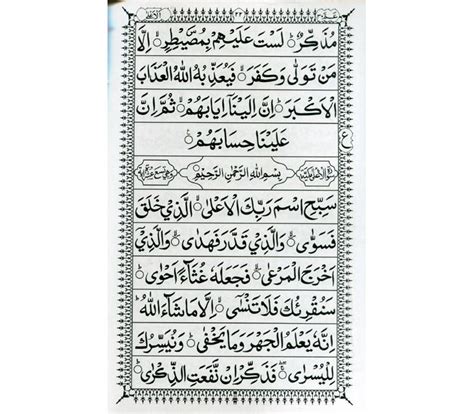 مُذَكِّرٌ ۞ لَسْتَ عَلَيْهِمْ بِمُصَۜيْطِرٍ ۞ اِلَّا
مَنْ تَوَلّٰى وَكَفَرَ ۞ فَيُعَذِّبُهُ اللّٰهُ الْعَذَابَ
الْاَكْبَرَ ۞ اِنَّ اِلَيْنَاۤ اِيَابَهُمْ ۞ ثُمَّ اِنَّ
عَلَيْنَا حِسَابَهُمْ ۞
بِسْمِ اللّٰهِ الرَّحْمٰنِ الرَّحِيْمِ
سَبِّحِ اسْمَ رَبِّكَ الْاَعْلَى ۞ الَّذِيْ خَلَقَ
فَسَوّٰى ۞ وَالَّذِيْ قَدَّرَ فَهَدٰى ۞ وَالَّذِيْ
اَخْرَجَ الْمَرْعٰى ۞ فَجَعَلَهٗ غُثَآءً اَحْوٰى ۞
سَنُقْرِئُكَ فَلَا تَنْسٰى ۞ اِلَّا مَا شَآءَ اللّٰهُ
اِنَّهٗ يَعْلَمُ الْجَهْرَ وَمَا يَخْفٰى ۞ وَنُيَسِّرُكَ
لِلْيُسْرٰى ۞ فَذَكِّرْ اِنْ نَّفَعَتِ الذِّكْرٰى ۞